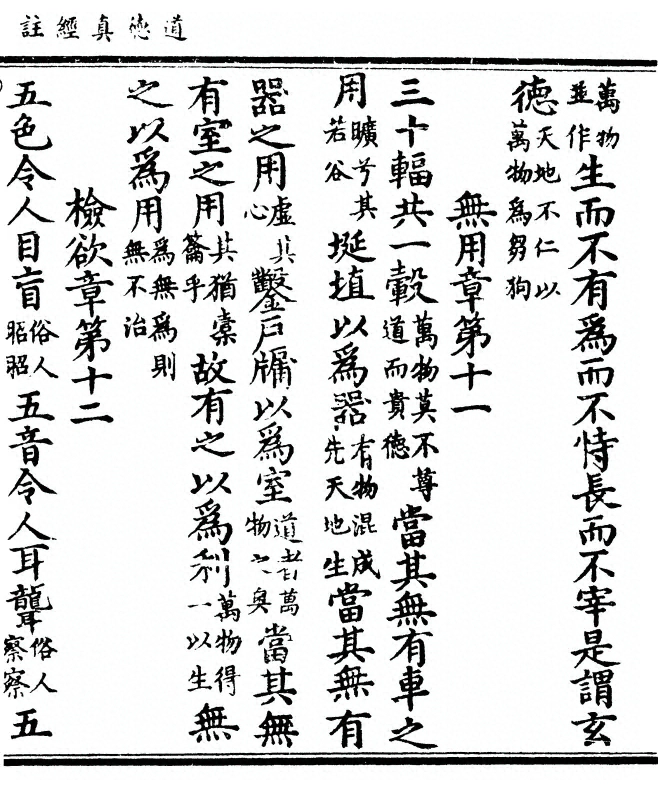 道德真經註
萬物並作生而不有爲而不恃長而不宰是謂玄
德天地不仁以萬物爲芻狗
無用章第十一
三十輻共一轂萬物莫不尊道而貴德當其無有車之
用曠兮其若谷埏埴以爲器有物混成先天地生當其無有
器之用虛其心鑿戶牖以爲室道者萬物之奧當其無
有室之用其猶橐籥乎故有之以爲利萬物得一以生無
之以爲用爲無爲則無不治
檢欲章第十二
五色令人目盲俗人昭昭五音令人耳聾俗人察察五